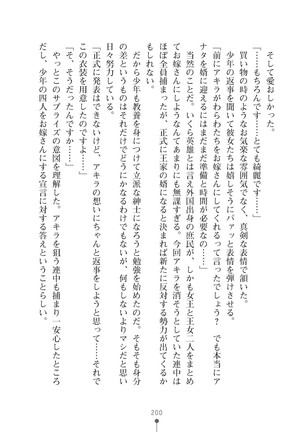 そして愛おしかった。
「……もちろんです……とても綺麗です」
買い物の時のようなお気楽な雰囲気でなく、真剣な表情で
少年の返事を聞いて彼女たちは嬉しそうにパァッと表情を弾けさせる。
「前にアキラがわらわたちをお嫁さんにしてくれるって言ったでしょう？　でも本当にア
ナタを婿に迎えるにはまだまだ準備と時間が必要なの……」
当然のことだ。いくら英雄とは言え外国出身の庶民が、しかも女王と王女二人をまとめ
てお嫁さんにしようなんてあまりにも無謀すぎる。今回アキラを消そうとしていた連中は
ほぼ全員捕まったが、正式に王家の婿になると決まれば新たに反対する勢力が出てくるか
もしれない。
だから少年も教養を身につけて立派な紳士になろうと勉強を始めている。そもそも身分
の差というものはそれだけでどうにかなるわけでもないが、何もしないよりマシだと思い
日々努力している。
「正式に発表はできないけど、アキラの想いにちゃんと返事をしようと思って……それで
この衣装を用意したのですよ」
「そ、そうだったんですか……」
やっとこのサプライズの意図を理解した。アキラを狙う連中も捕まり一安心したところ
で、少年の四人をお嫁さんにする宣言に対する答えということらしい。
200